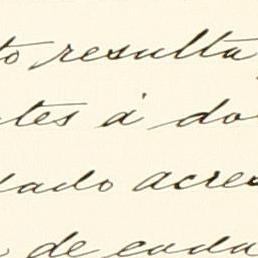 to resulta
ntes á do
dado acre
de cada